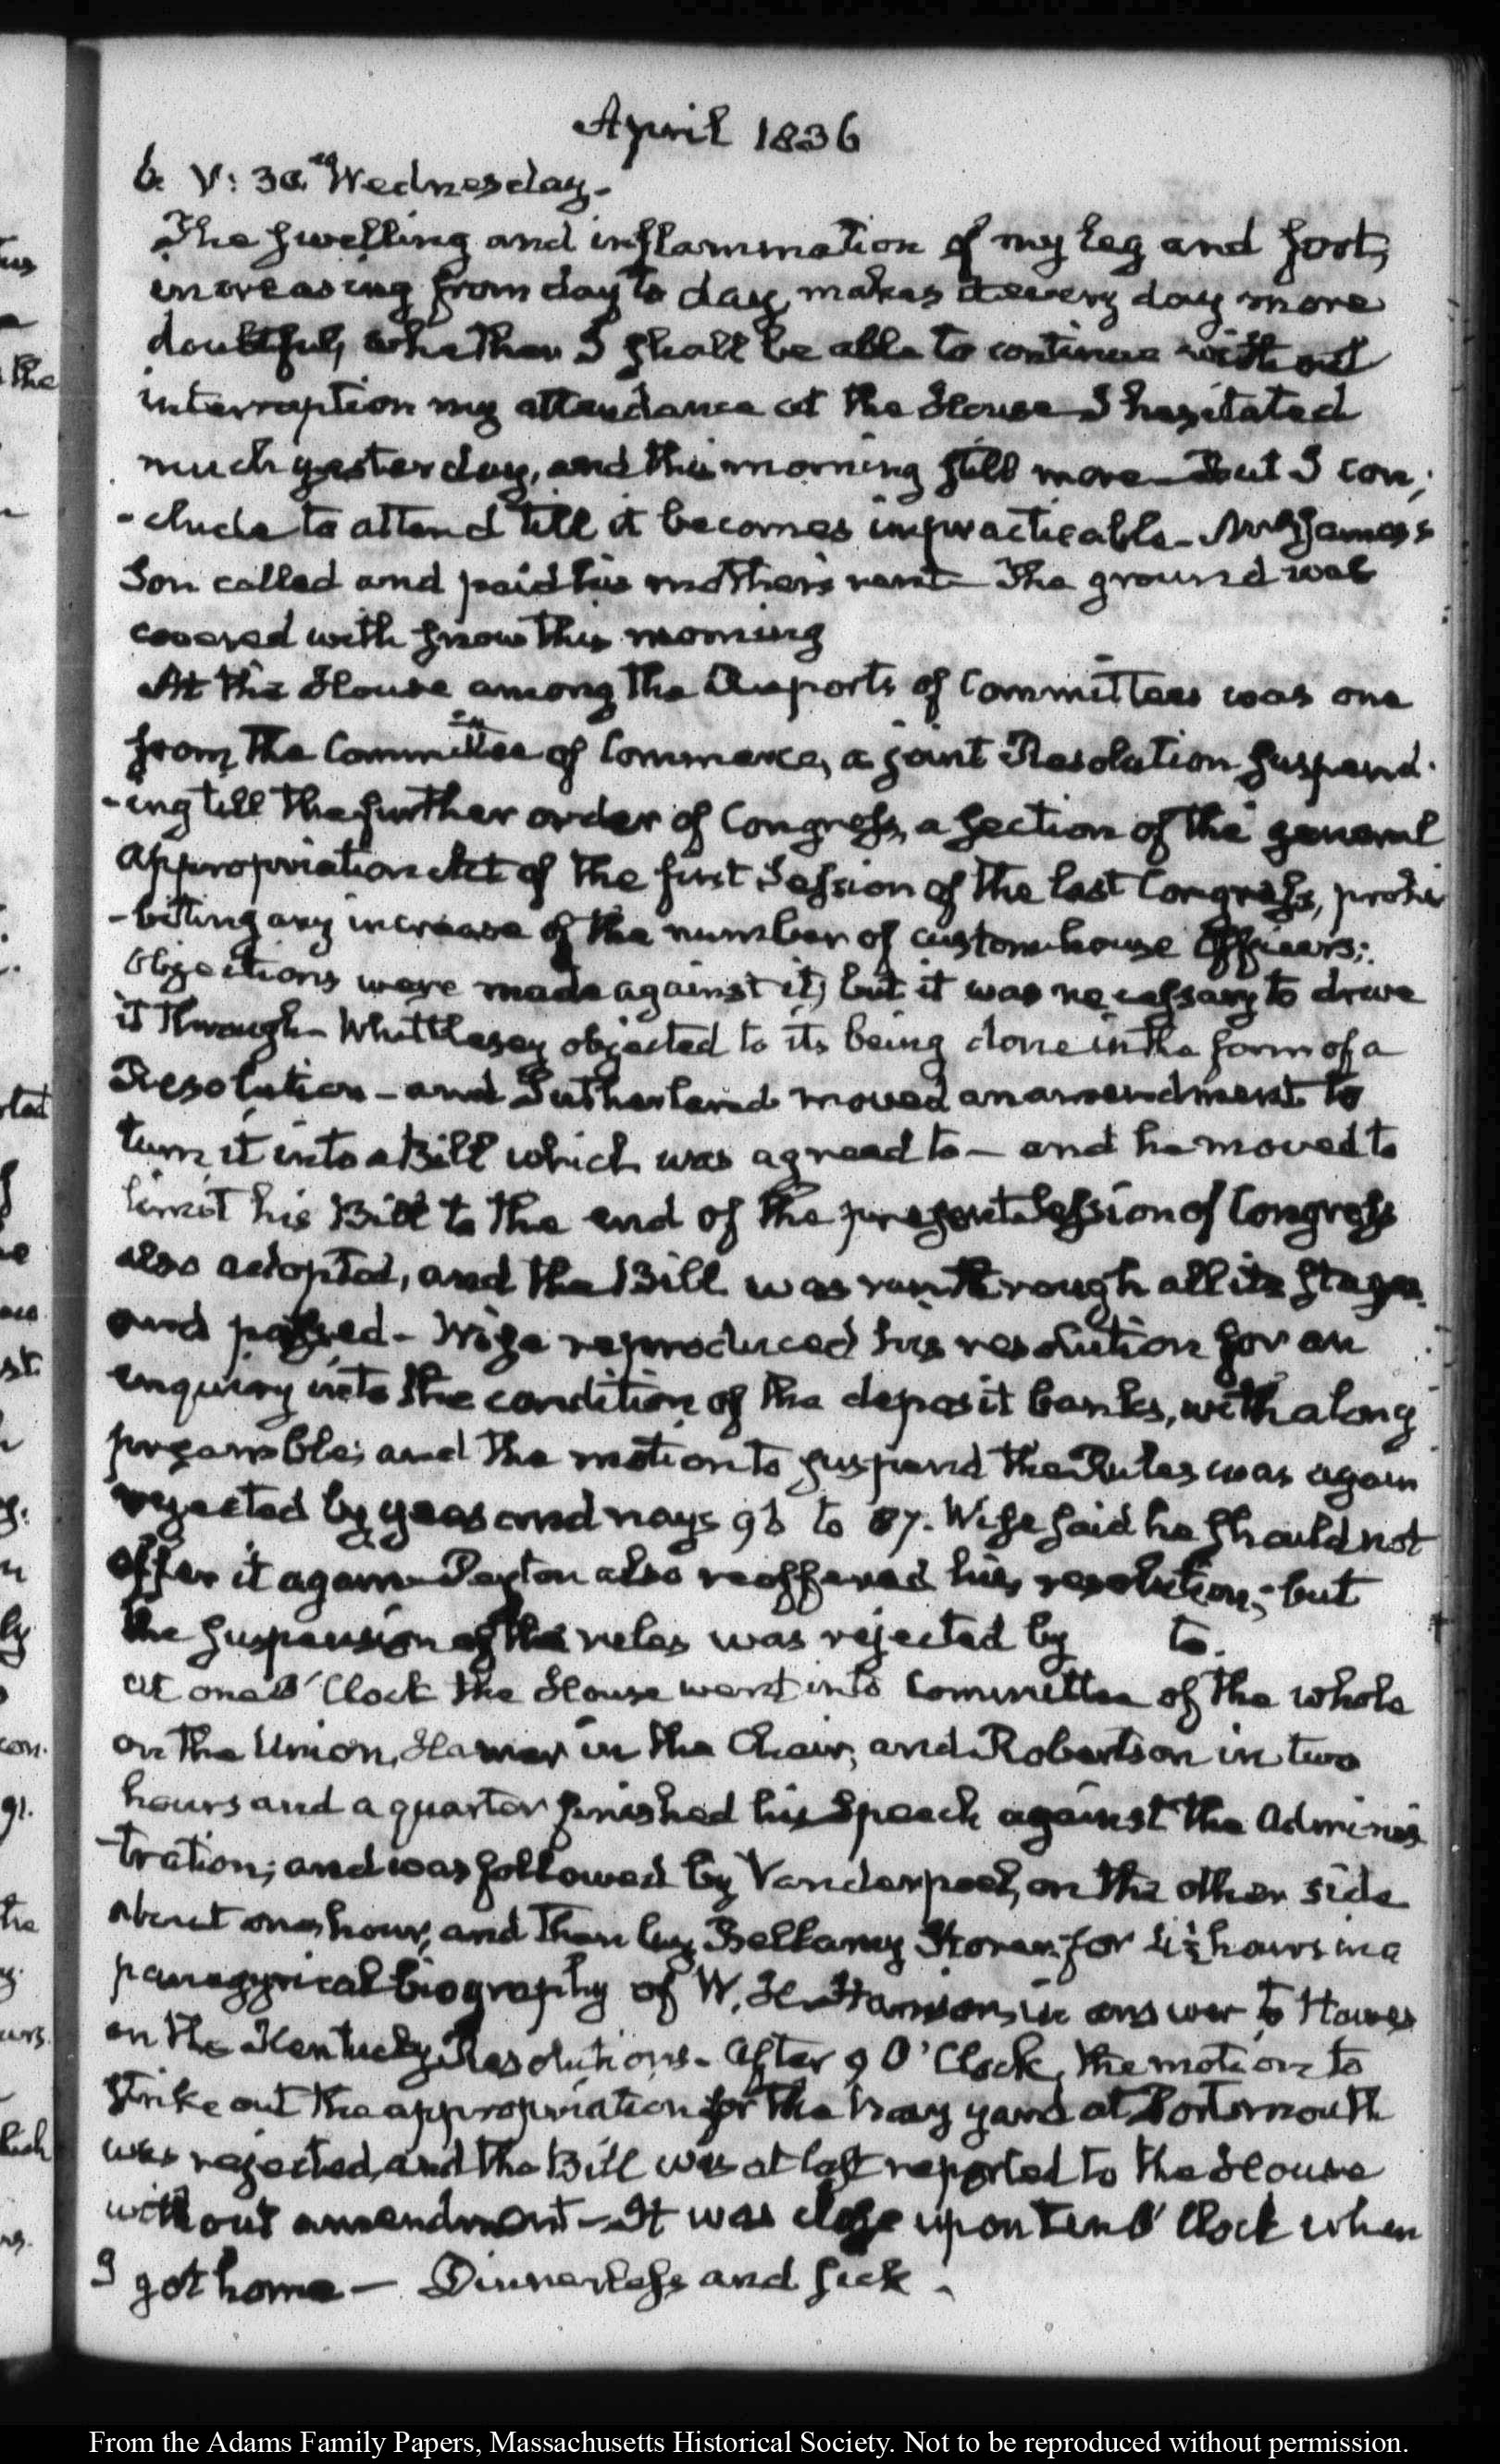 April 1836
6. V: 30. Wednesday.
The swelling and inflammation of my leg and foot,
increasing from day to day, makes it every day more
doubtful, whether I shall be able to continue without
interruption my attendance at the House I hesitated
much yesterday, and this morning still more — But I con-
-clude to attend till it becomes impracticable — James's
Son called and paid his mother's rent — The ground was
covered with snow this morning
At the House among the Reports of Committees was one
from the Committee of Commerce, a joint Resolution suspend-
-ing till the further order of Congress, a section of the general
appropriation Act of the first Session of the last Congress, prohi
-biting any increase of the number of custom-house officers;
objections were made against it, but it was necessary to drive
it through — Whittlesey objected to its being done in the form of a
Resolution — and Sutherland moved an amendment to
turn it into a Bill which was agreed to — and he moved to
limit his Bill to the end of the present Session of Congress
also adopted, and the Bill was run through all its stages
and passed — Wise reproduced his resolution for an
enquiry into the condition of the deposit banks, with a long
preamble; and the motion to suspend the Rules was again
rejected by yeas and nays to 87. Wise said he should not
offer it again — Peyton also reoffered his resolution; but
the suspension of the rules was rejected by to.
at one O'Clock the House went into Committee of the whole
on the Union, Hamer in the Chair, and Robertson in two
hours and a quarter finished his Speech against the Adminis
-tration; and was followed by Vanderpoel, on the other side
about one hour, and then by Bellamy Storer for 4½ hours in a
panegyrical biography of W. H. Harrison, in answer to Hawes
on the Kentucky Resolutions — After 9 O'Clock, the motion to
strike out the appropriation for the Navy yard at Portsmouth
was rejected, and the Bill was at last reported to the House
without amendment — It was close upon ten O'Clock when
I got home — Dinnerless and sick.
From the Adams Family Papers, Massachusetts Historical Society. Not to be reproduced without permission.